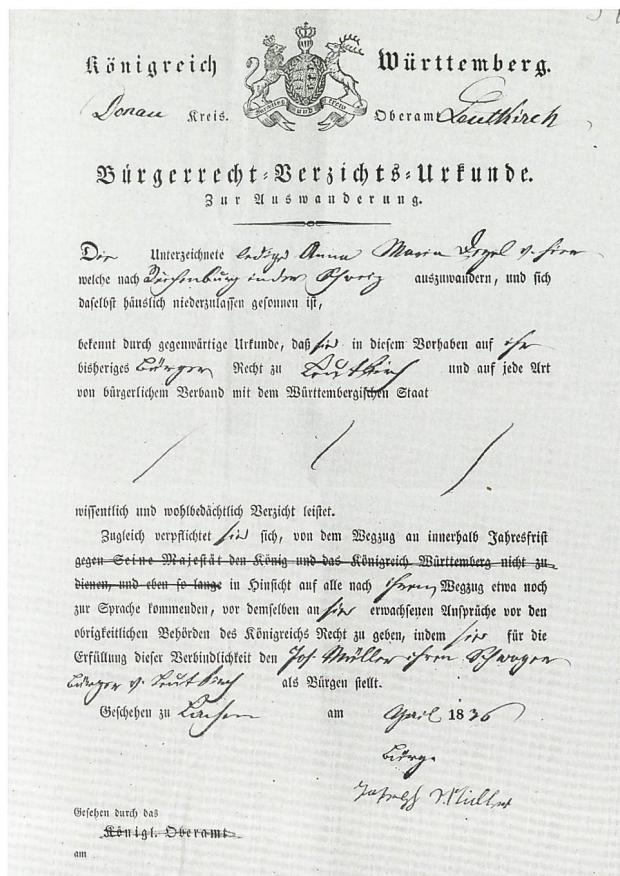 Königreich Württemberg.
Donau Kreis. Oberamt Leutkirch
Bürgerrecht-Verzichts-Urkunde.
Zur Auswanderung.
Die Unterzeichnete ledige Anna Maria v. hier
welche nach in der Schweiz auszuwandern, und sich
daselbst häuslich niederzulassen gesonnen ist,
bekennt durch gegenwärtige Urkunde, daß sie in diesem Vorhaben auf ihr
bisheriges Bürger Recht zu Leutkirch und auf jede Art
von bürgerlichem Verband mit dem Württembergischen Staat
wissentlich und wohlbedächtlich Verzicht leistet.
Zugleich verpflichtet sie sich, von dem Wegzug an innerhalb Jahresfrist
gegen Seine Majestät den König und das Königreich Württemberg nicht zu
dienen, und eben so lange in Hinsicht auf alle nach ihrem Wegzug etwa noch
zur Sprache kommenden, vor demselben an sie erwachsenen Ansprüche vor den
obrigkeitlichen Behörden des Königreichs Recht zu geben, indem sie für die
Erfüllung dieser Verbindlichkeit den Jos. Müller ihren Schwager
Bürger v. Leutkirch als Bürgen stellt.
Geschehen zu am April 1836
Bürge
Joseph Müller
Gesehen durch das
Königl. Oberamt
am